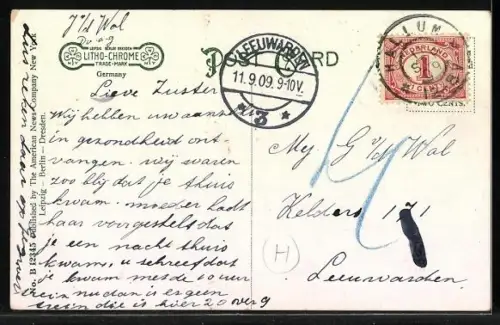 J v/d Wal
LEIPZIG BERLIN DRESDEN
LITHO-CHROME
TRADE-MARK
Germany
POST CARD
LEEUWARDEN
11.9.09.9-10V.
3
HALLUM
NEDERLAND
1
CENT
TWO CENTS.
No. B 12345 Published by The American News Company New York
Leipzig - Berlin - Dresden.
Lieve Zuster
Wij hebben uw aanzien
in gezondheid ont-
vangen. wij waren
zoo blij dat je thuis
kwam. moeder hadt
haar voorgesteld dat
je een nacht thuis
kwam, u schreef dat
je kwam met de 10 uur
trein nu dan is er geen
trein die is hier 20 over 9
Mej G v/d Wal
Kelders 171
Leeuwarden
H